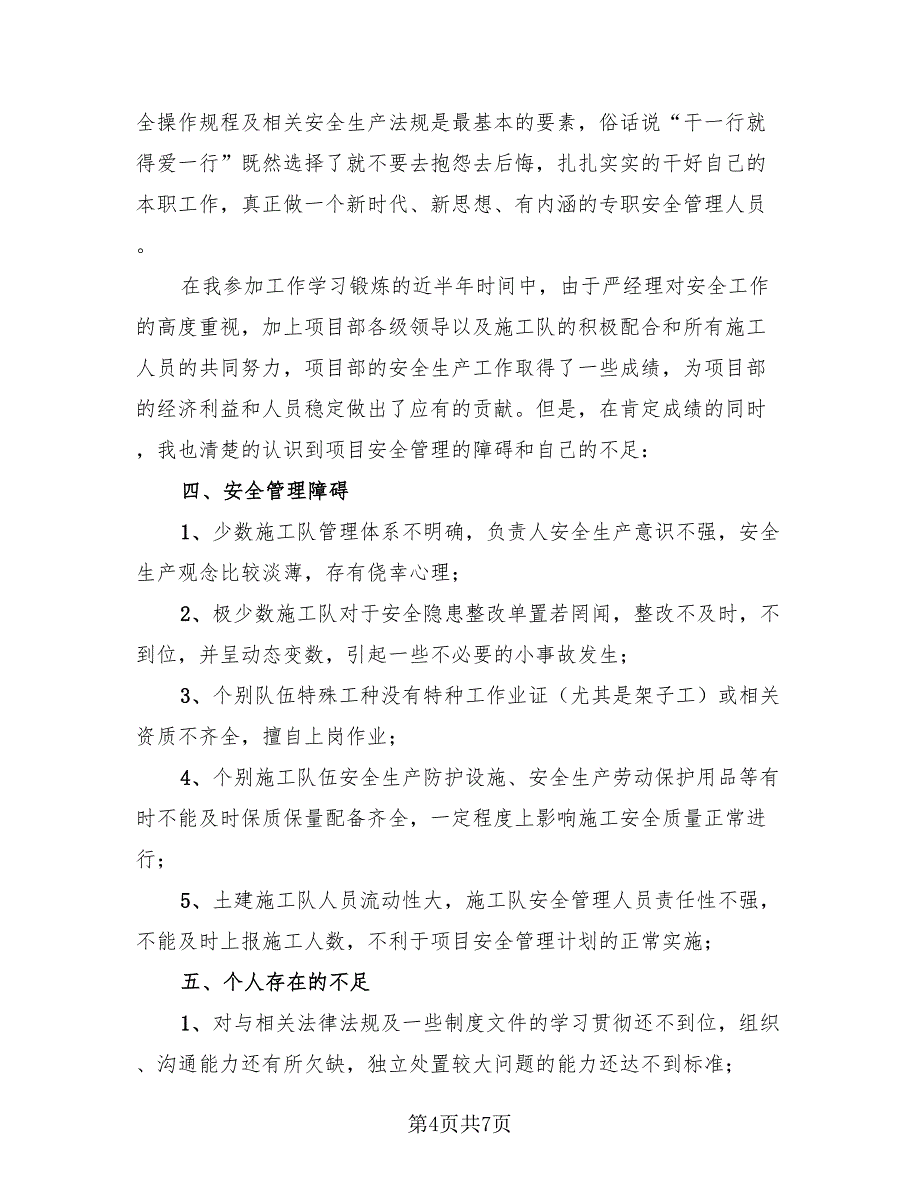 全操作规程及相关安全生产法规是最基本的要素，俗话说“干一行就
得爱一行”既然选择了就不要去抱怨去后悔，扎扎实实的干好自己的
本职工作，真正做一个新时代、新思想、有内涵的专职安全管理人员
。
在我参加工作学习锻炼的近半年时间中，由于严经理对安全工作
的高度重视，加上项目部各级领导以及施工队的积极配合和所有施工
人员的共同努力，项目部的安全生产工作取得了一些成绩，为项目部
的经济利益和人员稳定做出了应有的贡献。但是，在肯定成绩的同时
，我也清楚的认识到项目安全管理的障碍和自己的不足：
四、安全管理障碍
1、少数施工队管理体系不明确，负责人安全生产意识不强，安全
生产观念比较淡薄，存有侥幸心理；
2、极少数施工队对于安全隐患整改单置若罔闻，整改不及时，不
到位，并呈动态变数，引起一些不必要的小事故发生；
3、个别队伍特殊工种没有特种工作业证（尤其是架子工）或相关
资质不齐全，擅自上岗作业；
4、个别施工队伍安全生产防护设施、安全生产劳动保护用品等有
时不能及时保质保量配备齐全，一定程度上影响施工安全质量正常进
行；
5、土建施工队人员流动性大，施工队安全管理人员责任性不强，
不能及时上报施工人数，不利于项目安全管理计划的正常实施；
五、个人存在的不足
1、对与相关法律法规及一些制度文件的学习贯彻还不到位，组织
、沟通能力还有所欠缺，独立处置较大问题的能力还达不到标准；
第4页共7页